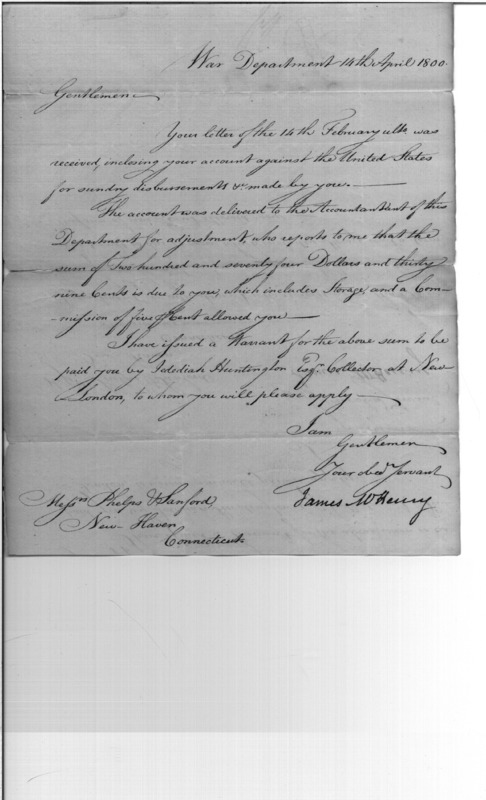 War Department 14th April 1800.
Gentlemen
Your letter of the 14th February ulto was
received, inclosing your account against the United States
for sundry disbursements &c. made by you.
The account was delivered to the Accountant of this
Department for adjustment, who reports to me that the
sum of Two hundred and seventy four Dollars and thirty
nine Cents is due to you, which includes Storage, and a Com-
-mission of five ⅌ Cent allowed you
I have issued a Warrant for the above sum to be
paid you by Jedediah Huntington Esqr. Collector at New
London, to whom you will please apply
I am
Gentlemen
Your obed. Servant
James McHenry
Messrs. Phelps & Sanford,
New-Haven
Connecticut